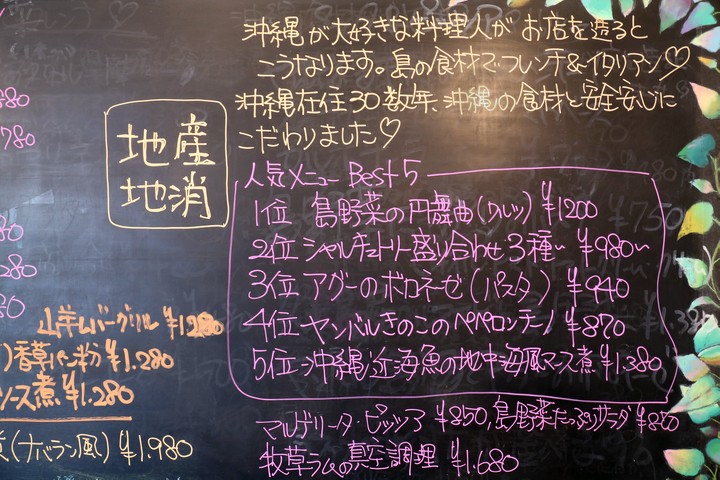 沖縄が大好きな料理人がお店を造ると
こうなります。島の食材でフレンチ&イタリアン♡
沖縄在住30数年、沖縄の食材と安全安心に
こだわりました♡
地産
地消
人気メニュー Best 5
1位 島野菜の円舞曲(ワルツ) ¥1200
2位 シャルキュトリー盛り合わせ3種~ ¥980~
3位 アグーのボロネーゼ(パスタ) ¥940
4位 ヤンバルきのこのペペロンチーノ ¥870
5位 沖縄近海魚の地中海風マース煮 ¥1.380
マルゲリータ・ピッツァ ¥850, 島野菜たっぷりサラダ ¥850
牧草ラムの真空調理 ¥1.680
880
780
280
80
山羊ハンバーグリル ¥1280
)香草パン粉 ¥1.280
ソース煮 ¥1.280
(ナバラン風) ¥1.980